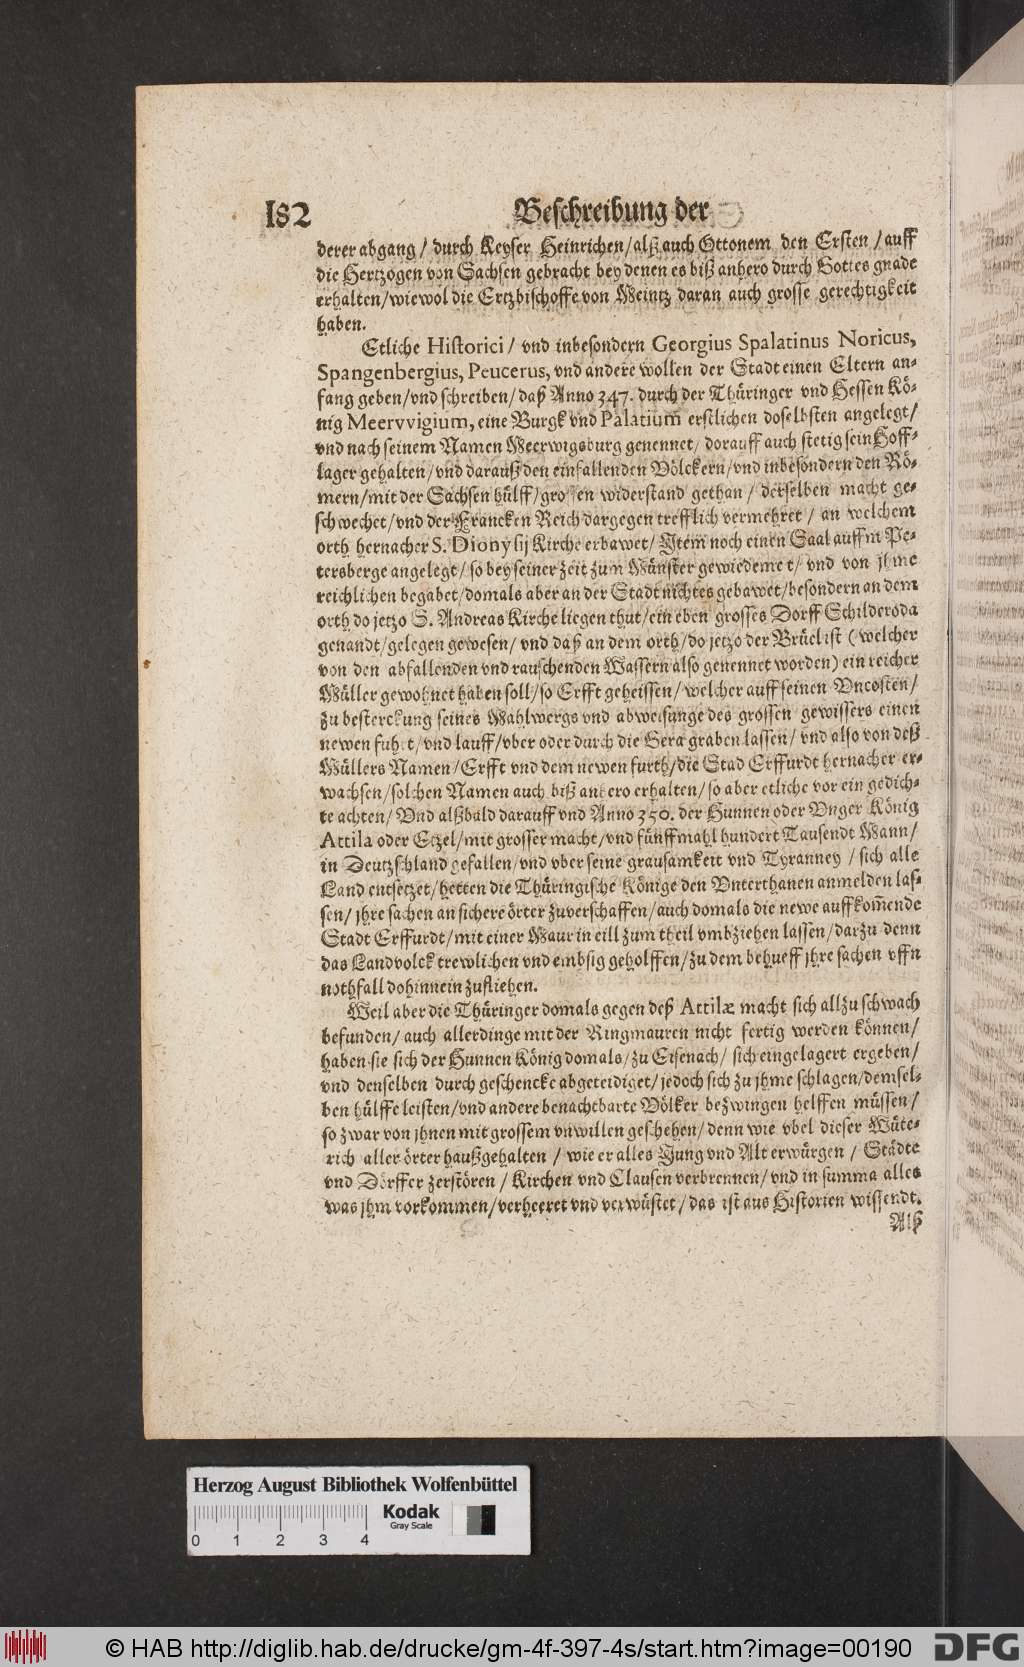 182
Beschreibung der
derer abgang / durch Keyser Heinrichen/alß auch Ottonem den Ersten / auff
die Hertzogen von Sachsen gebracht bey denen es biß anhero durch Gottes gnade
erhalten/wiewol die Ertzbischoffe von Meintz daran auch grosse gerechtigkeit
haben.
Etliche Historici / vnd inbesondern Georgius Spalatinus Noricus,
Spangenbergius, Peucerus, vnd andere wollen der Stadt einen Eltern an-
fang geben/vnd schreiben/daß Anno 347. durch der Thüringer vnd Hessen Kö-
nig Meervvigium, eine Burgk vnd Palatium erstlichen doselbsten angelegt/
vnd nach seinem Namen Meerwigsburg genennet/ dorauff auch stetig sein Hoff-
lager gehalten/vnd darauß den einfallenden Völckern/vnd inbesondern den Rö-
mern/mit der Sachsen hülff/grossen widerstand gethan / derselben macht ge-
schwechet/vnd der Francken Reich dargegen trefflich vermehret / an welchem
orth hernacher S. Dionysij Kirche erbawet/ Item noch einen Saal auffm Pe-
tersberge angelegt/so bey seiner zeit zum Münster gewiedemet/ vnd von jhme
reichlichen begabet/domals aber an der Stadt nichtes gebawet/besondern an dem
orth do jetzo S. Andreas Kirche liegen thut/ein eben grosses Dorff Schilderoda
genandt/gelegen gewesen/ vnd daß an dem orth/do jetzo der Brüel ist (welcher
von den abfallenden vnd rauschenden Wassern also genennet worden) ein reicher
Müller gewohnet haben soll/so Erfft geheissen/welcher auff seinen Vncosten/
zu besterckung seines Mahlwergs vnd abweisunge des grossen gewissers einen
newen fuhrt/vnd lauff/vber oder durch die Gera graben lassen/ vnd also von deß
Müllers Namen/Erfft vnd dem newen furth/die Stad Erffurdt hernacher er-
wachsen/solchen Namen auch biß anhero erhalten/so aber etliche vor ein gedich-
te achten/ Vnd alßbald darauff vnd Anno 350. der Hunnen oder Vnger König
Attila oder Etzel/mit grosser macht/vnd fünffmahl hundert Tausendt Mann/
in Deutzschland gefallen/vnd vber seine grausamkeit vnd Tyranney / sich alle
Land entsetzet/hetten die Thüringische Könige den Vnterthanen anmelden las-
sen/ jhre sachen an sichere örter zuverschaffen/auch domals die newe auffkom̃ende
Stadt Erffurdt/mit einer Maur in eill zum theil vmbziehen lassen/darzu denn
das Landvolck trewlichen vnd embsig geholffen/zu dem behueff jhre sachen vffn
nothfall dohinnein zufliehen.
Weil aber die Thüringer domals gegen deß Attilæ macht sich allzu schwach
befunden/auch allerdinge mit der Ringmauren nicht fertig werden können/
haben sie sich der Hunnen König domals/zu Eisenach/ sich eingelagert ergeben/
vnd denselben durch geschencke abgeteidiget/jedoch sich zu jhme schlagen/demsel-
ben hülffe leisten/vnd andere benachtbarte Völker bezwingen helffen müssen/
so zwar von jhnen mit grossem vnwillen geschehen/denn wie vbel dieser Wüte-
rich aller örter haußgehalten / wie er alles Jung vnd Alt erwürgen / Städte
vnd Dörffer zerstören / Kirchen vnd Clausen verbrennen/vnd in summa alles
was jhm vorkommen/verheeret vnd verwüstet/das ist aus Historien wissendt.
Alß
Herzog August Bibliothek Wolfenbüttel
Kodak
Gray Scale
0 1 2 3 4
© HAB http://diglib.hab.de/drucke/gm-4f-397-4s/start.htm?image=00190
DFG